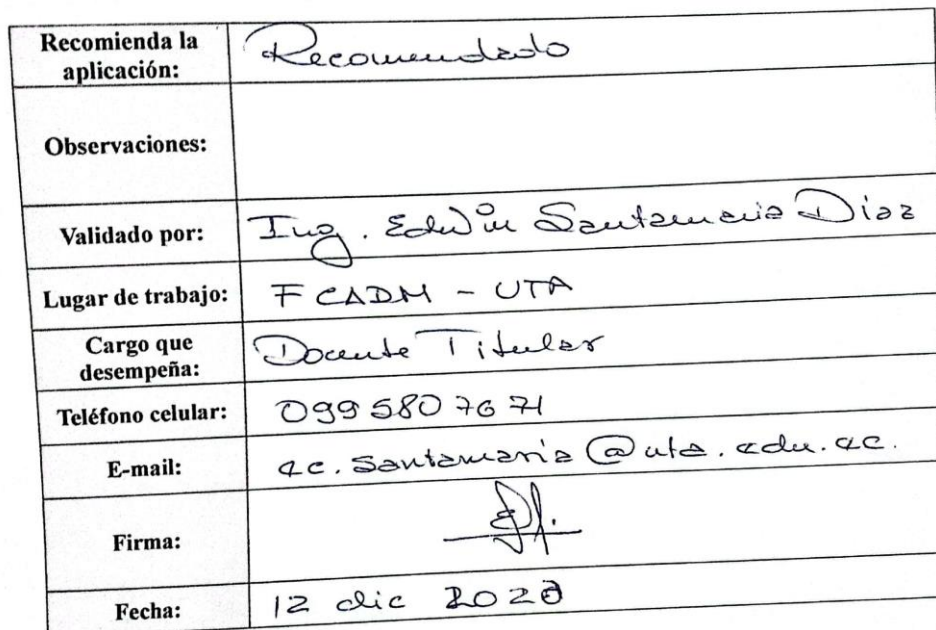 Recomienda la
aplicación:
Recomendado
Observaciones:
Validado por:
Ing. Edwin Santamaria Díaz
Lugar de trabajo:
FCADM - UTA
Cargo que
desempeña:
Docente Titular
Teléfono celular:
099 580 76 71
E-mail:
ec.santamaria@uta.edu.ec.
Firma:
Fecha:
12 dic 2020